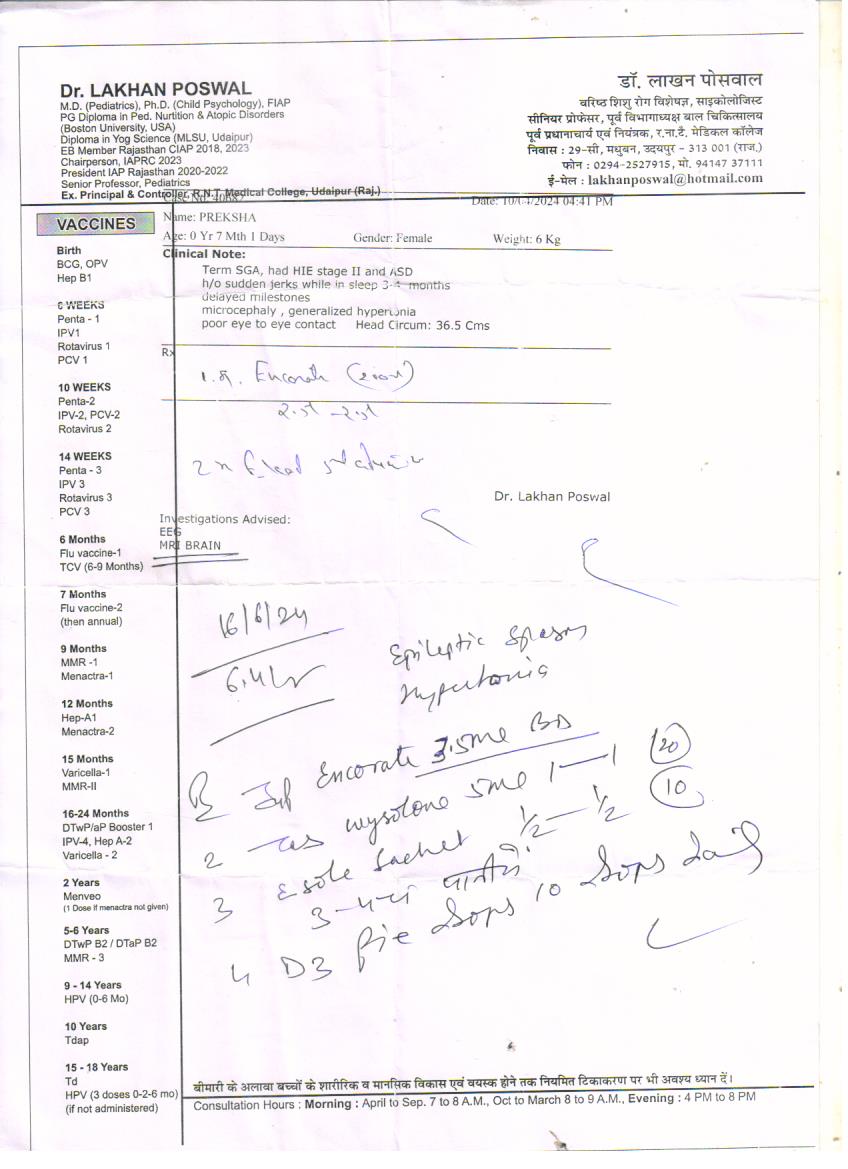 Dr. LAKHAN POSWAL
M.D. (Pediatrics), Ph.D. (Child Psychology), FIAP
PG Diploma in Ped. Nurtition & Atopic Disorders
(Boston University, USA)
Diploma in Yog Science (MLSU, Udaipur)
EB Member Rajasthan CIAP 2018, 2023
Chairperson, IAPRC 2023
President IAP Rajasthan 2020-2022
Senior Professor, Pediatrics
Ex. Principal & Controller, R.N.T. Medical College, Udaipur (Raj.)
डॉ. लाखन पोसवाल
वरिष्ठ शिशु रोग विशेषज्ञ, साइकोलोजिस्ट
सीनियर प्रोफेसर, पूर्व विभागाध्यक्ष बाल चिकित्सालय
पूर्व प्रधानाचार्य एवं नियंत्रक, र.ना.टै. मेडिकल कॉलेज
निवास : 29-सी, मधुबन, उदयपुर - 313 001 (राज.)
फोन : 0294-2527915, मो. 94147 37111
ई-मेल : lakhanposwal@hotmail.com
Case No:
Date: 10/04/2024 04:41 PM
Name: PREKSHA
Age: 0 Yr 7 Mth 1 Days Gender: Female Weight: 6 Kg
Clinical Note:
Term SGA, had HIE stage II and ASD
h/o sudden jerks while in sleep 3-4 months
delayed milestones
microcephaly , generalized hypertonia
poor eye to eye contact Head Circum: 36.5 Cms
Rx
1. Encorate
Dr. Lakhan Poswal
Investigations Advised:
EEG
MRI BRAIN
16/6/24
Epileptic Spasms
Hypertonia
Encorate 3.5ml BD
2 wysolone 5mg 1—1 20
3 Esole Sachet ½—½ 10
4 D3 drops 10 drops daily
VACCINES
Birth
BCG, OPV
Hep B1
6 WEEKS
Penta - 1
IPV1
Rotavirus 1
PCV 1
10 WEEKS
Penta-2
IPV-2, PCV-2
Rotavirus 2
14 WEEKS
Penta - 3
IPV 3
Rotavirus 3
PCV 3
6 Months
Flu vaccine-1
TCV (6-9 Months)
7 Months
Flu vaccine-2
(then annual)
9 Months
MMR -1
Menactra-1
12 Months
Hep-A1
Menactra-2
15 Months
Varicella-1
MMR-II
16-24 Months
DTwP/aP Booster 1
IPV-4, Hep A-2
Varicella - 2
2 Years
Menveo
(1 Dose if menactra not given)
5-6 Years
DTwP B2 / DTaP B2
MMR - 3
9 - 14 Years
HPV (0-6 Mo)
10 Years
Tdap
15 - 18 Years
Td
HPV (3 doses 0-2-6 mo)
(if not administered)
बीमारी के अलावा बच्चों के शारीरिक व मानसिक विकास एवं वयस्क होने तक नियमित टिकाकरण पर भी अवश्य ध्यान दें।
Consultation Hours : Morning : April to Sep. 7 to 8 A.M., Oct to March 8 to 9 A.M., Evening : 4 PM to 8 PM